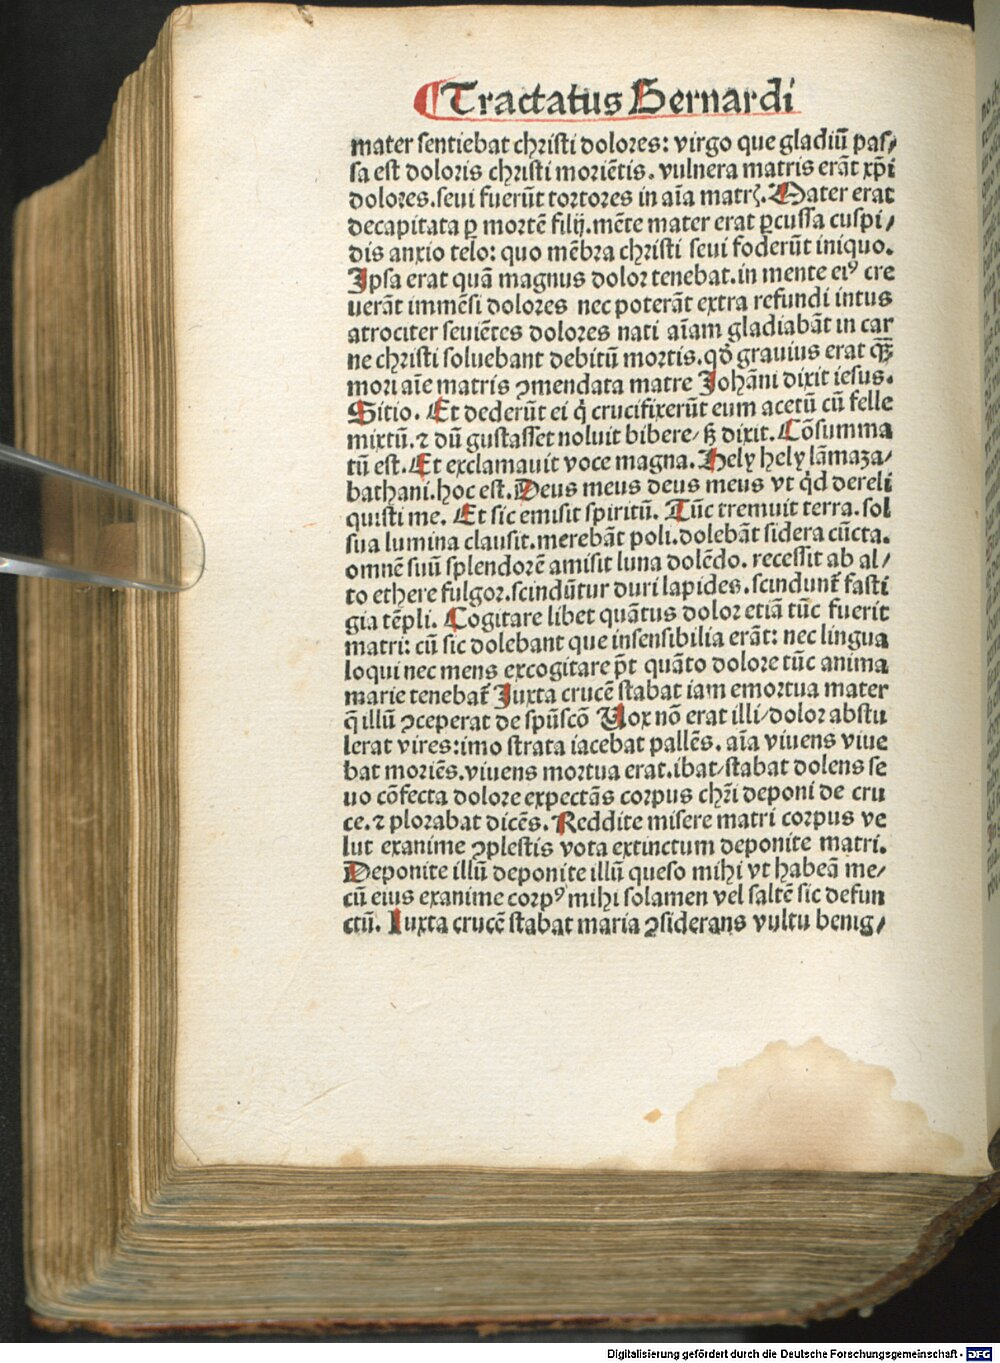 ⸿Tractatus Bernardi
mater sentiebat christi dolores: virgo que gladiū pas/
sa est doloris christi moriētis. vulnera matris erāt xp̄i
dolores. seui fuerūt tortores in aīa matrꝭ. Mater erat
decapitata ꝑ mortē filij. mēte mater erat ꝑcussa cuspi/
dis anxio telo: quo mēbra christi seui foderūt iniquo.
Ipsa erat quā magnus dolor tenebat. in mente eiꝰ cre
uerāt immēsi dolores nec poterāt extra refundi intus
atrociter seuiētes dolores nati aīam gladiabāt in car
ne christi soluebant debitū mortis. qđ grauius erat qȝ̄
mori aīe matris ꝯmendata matre Johāni dixit iesus.
Sitio. Et dederūt ei q̇ crucifixerūt eum acetū cū felle
mixtū. ⁊ dū gustasset noluit bibere/ sꝫ dixit. Cōsumma
tū est. Et exclamauit voce magna. Hely hely lāmaza/
bathani. hoc est. Deus meus deus meus vt q̇d dereli
quisti me. Et sic emisit spiritū. Tūc tremuit terra. sol
sua lumina clausit. merebāt poli. dolebāt sidera cūcta.
omnē suū splendorē amisit luna dolēdo. recessit ab al/
to ethere fulgor. scindūtur duri lapides. scindunt̄ fasti
gia tēpli. Cogitare libet quātus dolor etiā tūc fuerit
matri: cū sic dolebant que insensibilia erāt: nec lingua
loqui nec mens excogitare p̄t quāto dolore tūc anima
marie tenebat̄ Juxta crucē stabat iam emortua mater
q̄ illū ꝯceperat de spūscō Uox nō erat illi/ dolor abstu
lerat vires: imo strata iacebat pallēs. aīa viuens viue
bat moriēs. viuens mortua erat. ibat/ stabat dolens se
uo cōfecta dolore expectās corpus chr̄i deponi de cru
ce. ⁊ plorabat dicēs. Reddite misere matri corpus ve
lut exanime ꝯplestis vota extinctum deponite matri.
Deponite illū deponite illū queso mihi vt habeā me/
cū eius exanime corpꝰ mihi solamen vel saltē sic defun
ctū. Iuxta crucē stabat maria ꝯsiderans vultu benig/
Digitalisierung gefördert durch die Deutsche Forschungsgemeinschaft - DFG